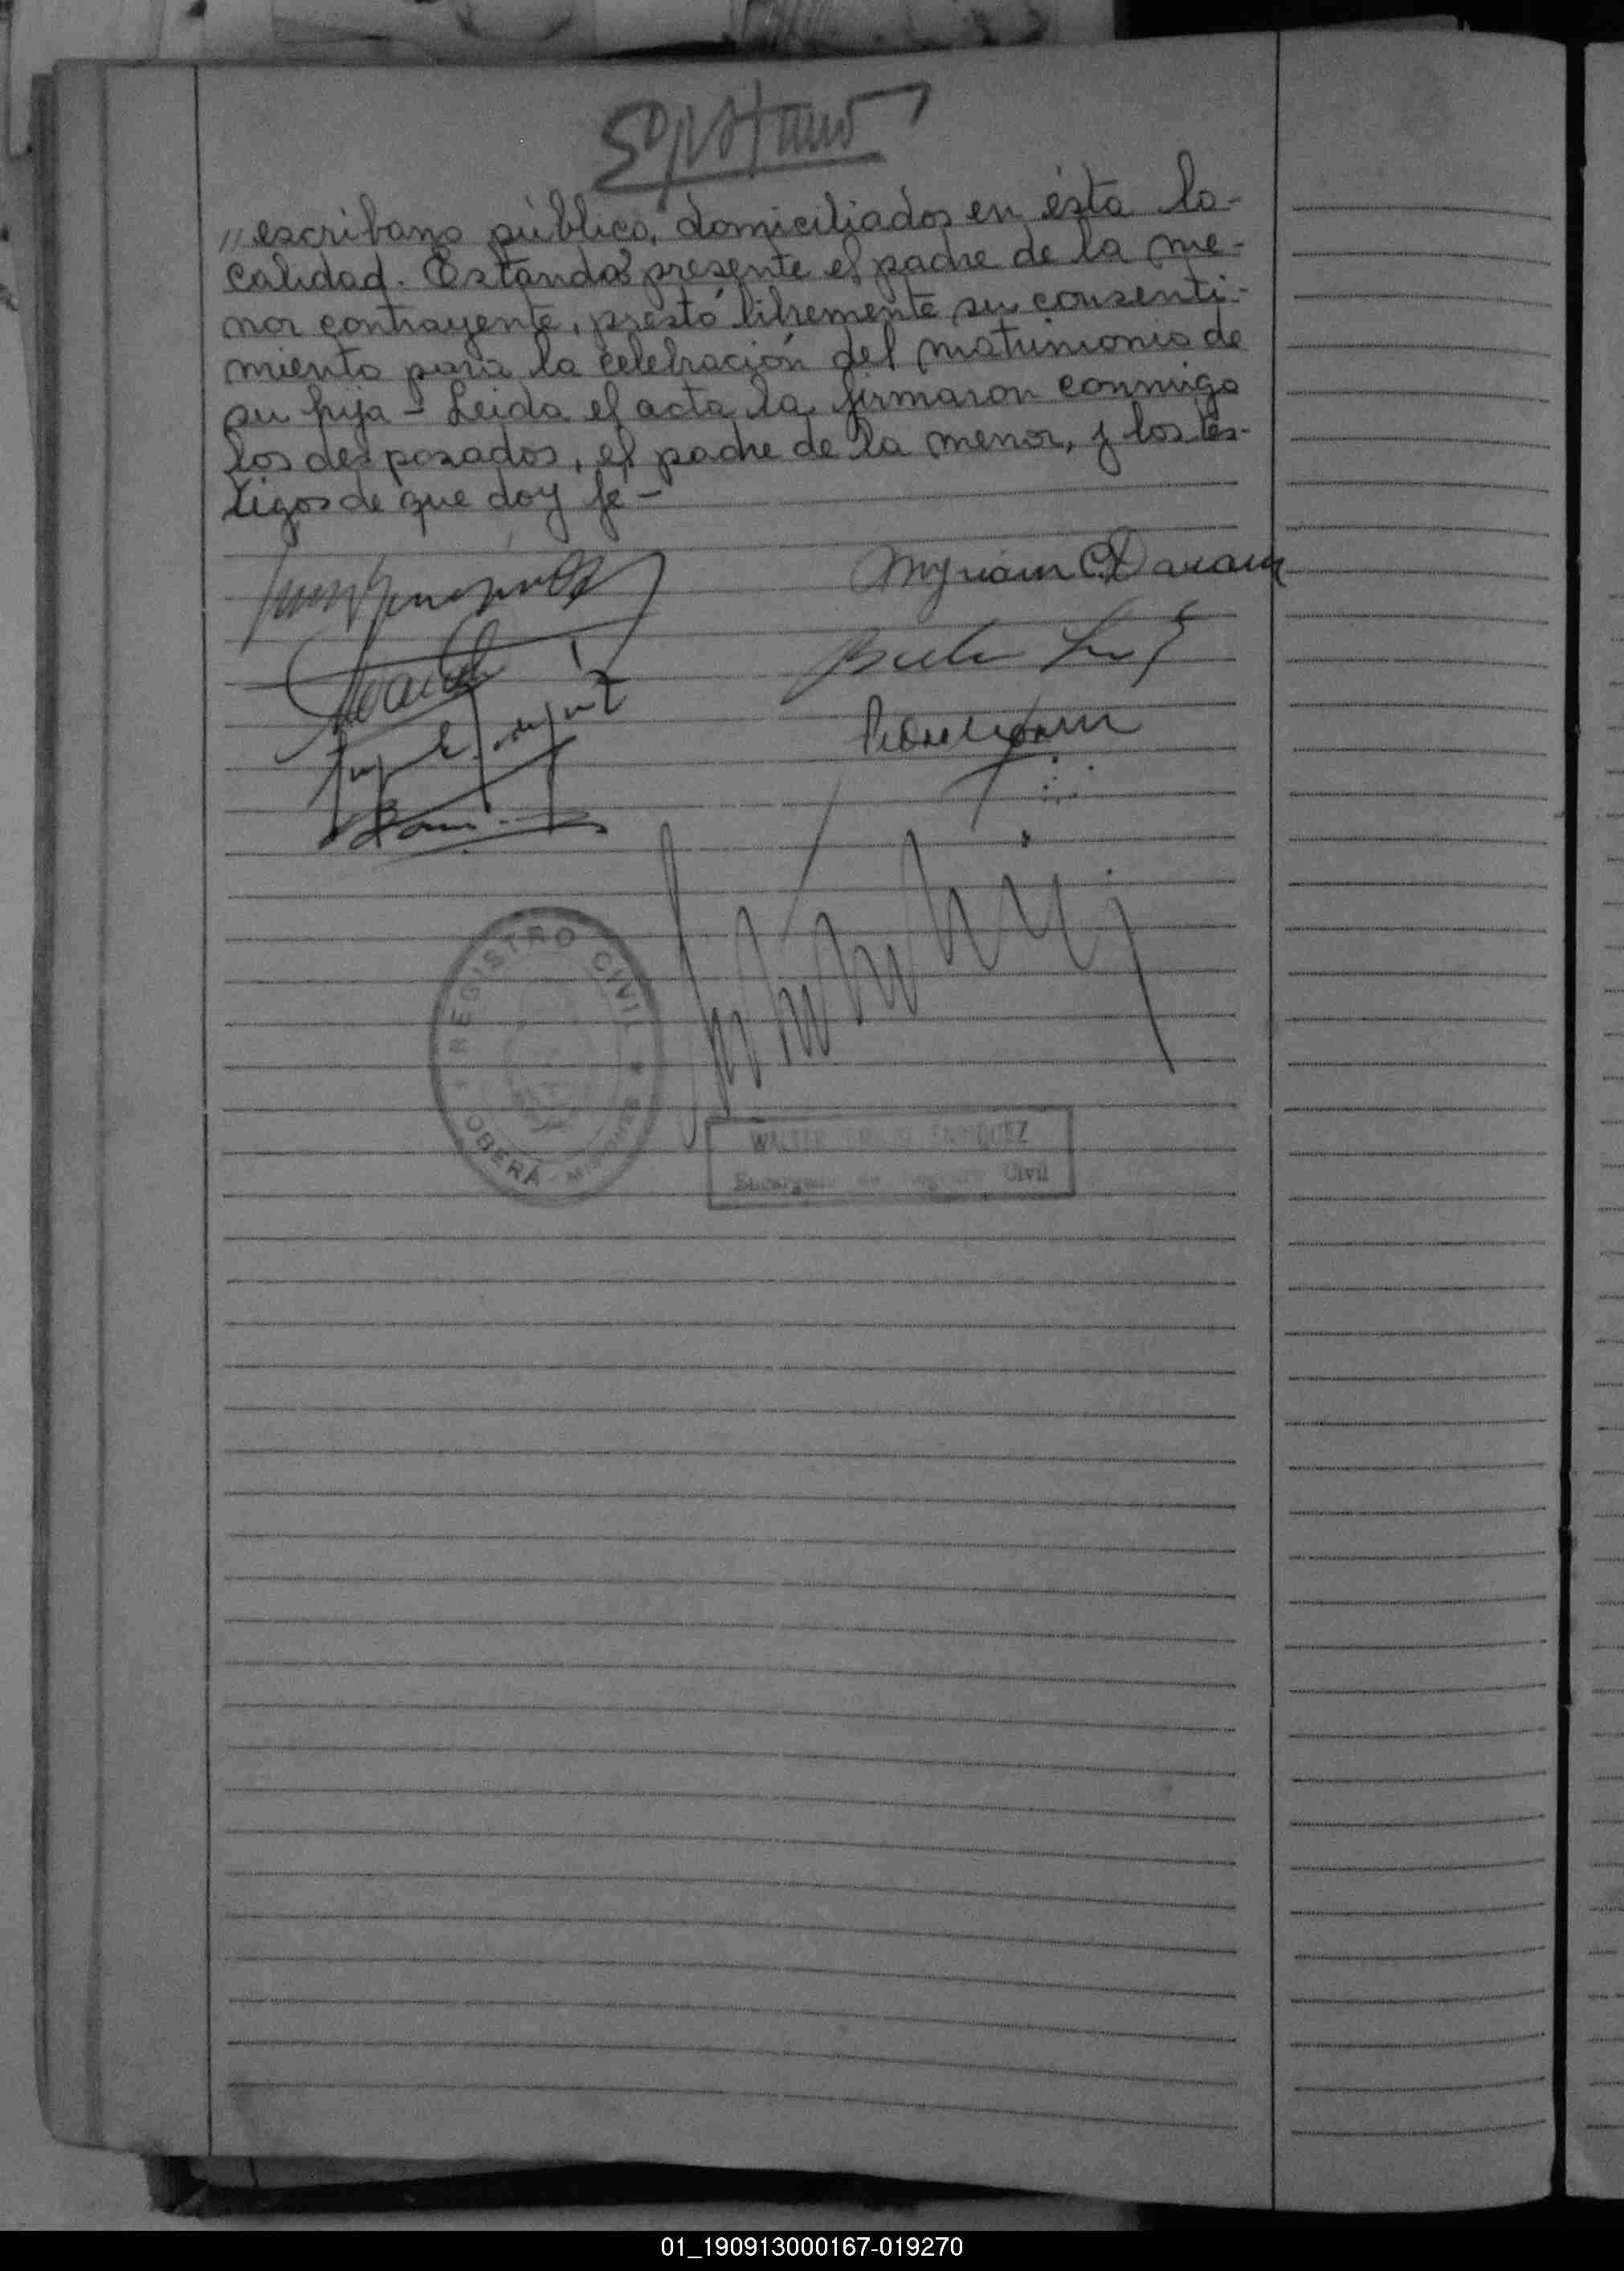 "escribano público, domiciliados en ésta lo-
calidad. Estando presente el padre de la me-
nor contrayente, prestó libremente su consenti-
miento para la celebración del matrimonio de
su hija - Leida el acta la firmaron conmigo
los desposados, el padre de la menor, y los tes-
tigos de que doy fe -
Myriam C.
REGISTRO CIVIL
OBERÁ - MISIONES
WALTER ENRIQUEZ
Encargado de Registro Civil
01_190913000167-019270